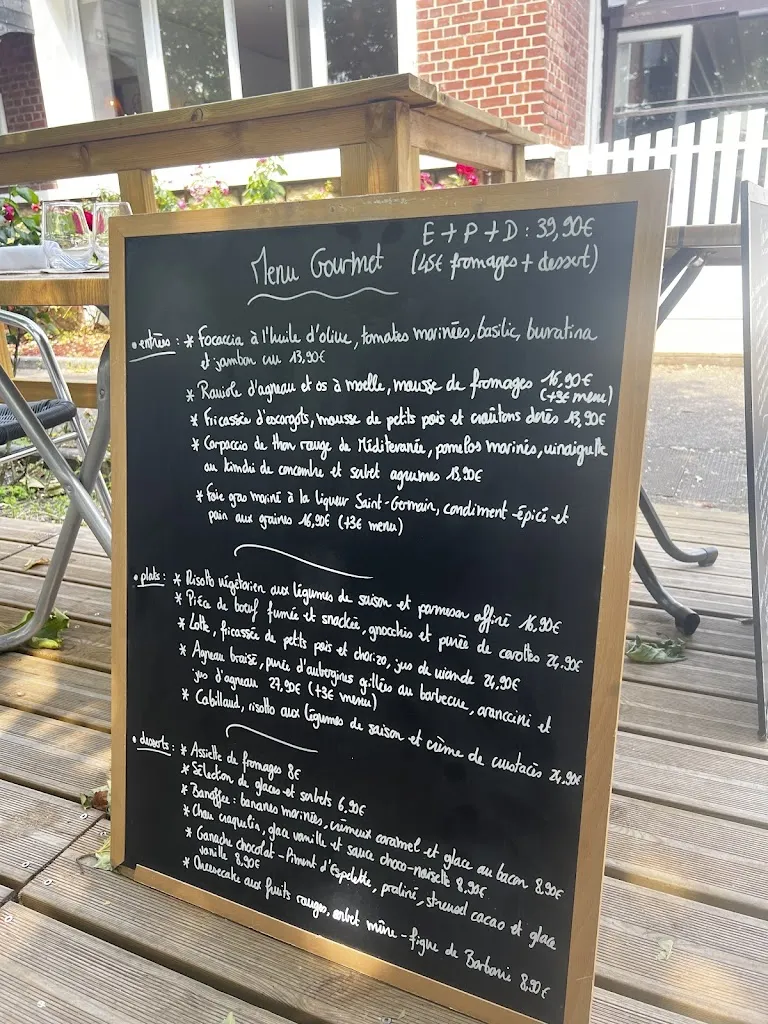 Menu Gourmet
E + P + D : 39,90€
(45€ fromages + dessert)
• entrées : * Focaccia à l'huile d'olive, tomates marinées, basilic, burratina
et jambon cru 13,90€
* Raviole d'agneau et os à moelle, mousse de fromages 16,90€
(+3€ menu)
* Fricassée d'escargots, mousse de petits pois et croûtons dorés 13,90€
* Carpaccio de thon rouge de Méditerranée, pomelos marinés, vinaigrette
au kimchi de concombre et sorbet agrumes 15,90€
* Foie gras mariné à la liqueur Saint-Germain, condiment épicé et
pain aux graines 16,90€ (+3€ menu)
• plats : * Risotto végétarien aux légumes de saison et parmesan affiné 16,90€
* Pièce de boeuf fumée et snackée, gnocchis et purée de carottes 24,90€
* Lotte, fricassée de petits pois et chorizo, jus de viande 24,90€
* Agneau braisé, purée d'aubergines grillées au barbecue, aranccini et
jus d'agneau 27,90€ (+3€ menu)
* Cabillaud, risotto aux légumes de saison et crème de crustacés 24,90€
• desserts : * Assiette de fromages 8€
* Sélection de glaces et sorbets 6,90€
* Banoffee : bananes marinées, crémeux caramel et glace au bacon 8,90€
* Chou craquelin, glace vanille et sauce choco-noisette 8,90€
* Ganache chocolat - Piment d'Espelette, praliné, streusel cacao et glace
vanille 8,90€
* Cheesecake aux fruits rouges, sorbet mûre - figue de Barbarie 8,90€